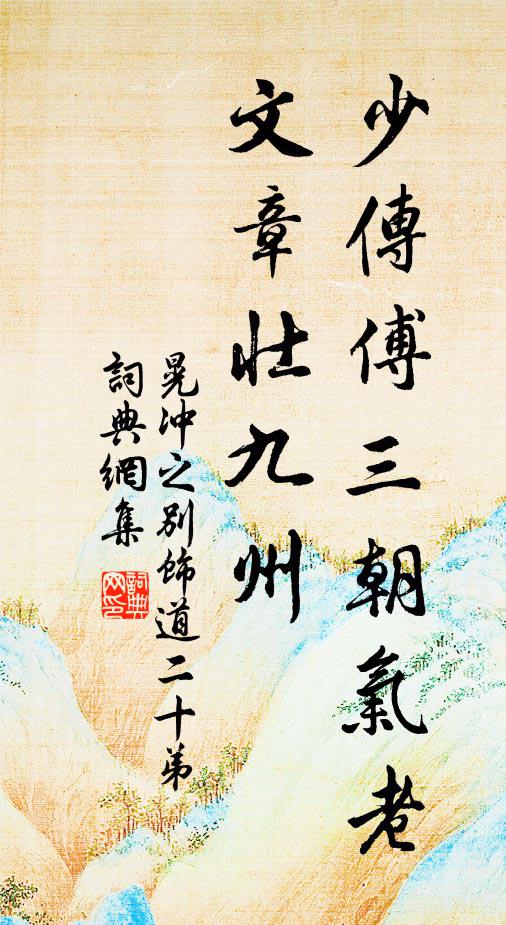 少傳傅三朝氣老
文章壯九州
晁沖之別飾道二十弟
詞典網集
詞典網印